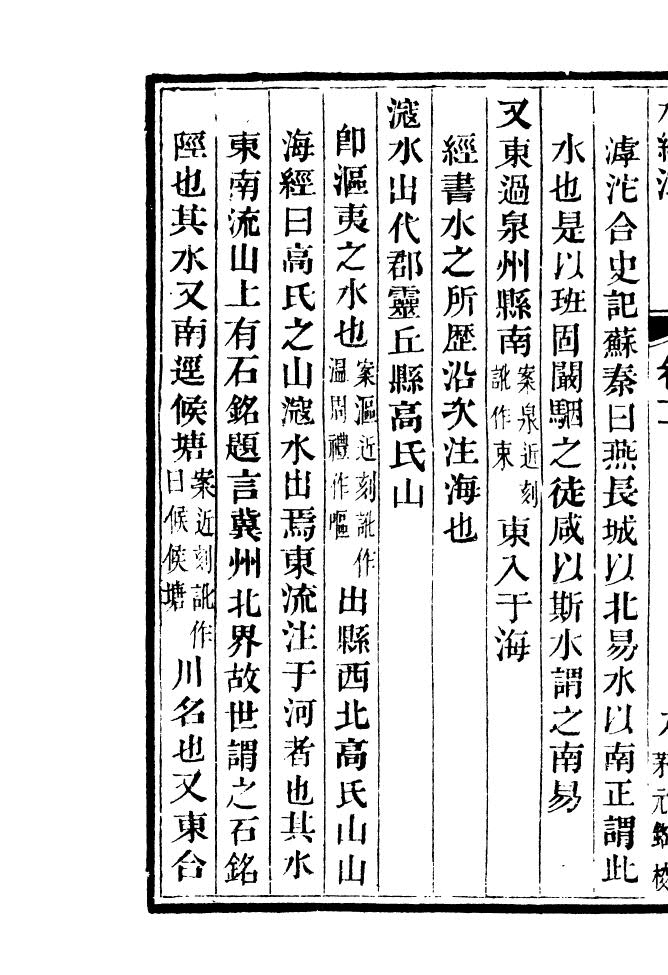 滹沱合史記蘇秦曰燕長城以北易水以南正謂此
水也是以班固闞駰之徒咸以斯水謂之南易
又東過泉州縣南案泉近刻訛作東東入于海
經書水之所歴沿次注海也
滱水出代郡靈丘縣高氏山
卽漚夷之水也案漚近刻訛作温周禮作嘔出縣西北高氏山山
海經曰高氏之山滱水出焉東流注于河者也其水
東南流山上有石銘題言冀州北界故世謂之石銘
陘也其水又南逕候塘案近刻訛作日候候塘川名也又東合